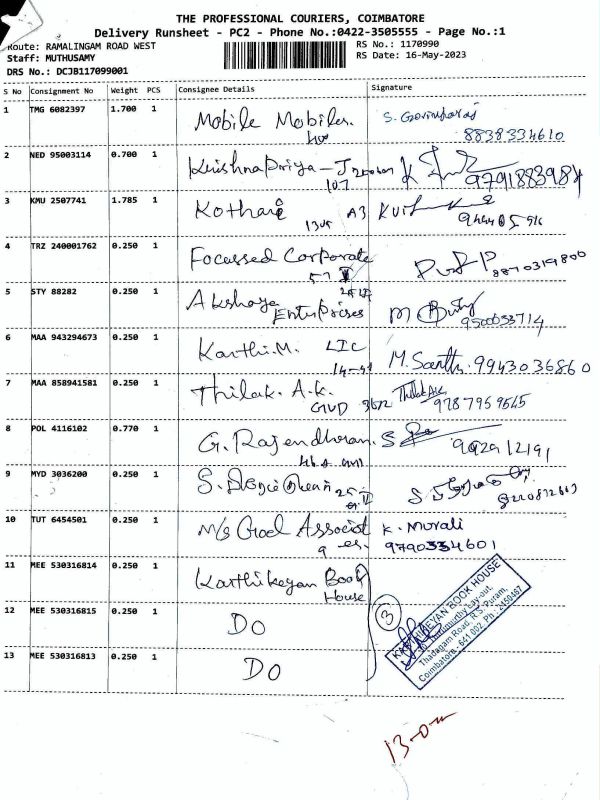 THE PROFESSIONAL COURIERS, COIMBATORE
Delivery Runsheet - PC2 - Phone No.:0422-3505555 - Page No.:1
Route: RAMALINGAM ROAD WEST
RS No.: 1170990
Staff: MUTHUSAMY
RS Date: 16-May-2023
DRS No.: DCJB117099001
S No Consignment No Weight PCS Consignee Details Signature
1 TMG 6082397 1.700 1 Mobile Mobiles. S. Govindaraj
8838334610
2 NED 95003114 0.700 1 Krishna Priya - K
107 9791883984
3 KMU 2507741 1.785 1 Kothari
A3
4 TRZ 240001762 0.250 1 Focussed Corporate
8870319800
5 STY 88282 0.250 1 Akshaya
Enterprises 9500033714
6 MAA 943294673 0.250 1 Karthi.M. LIC M. Santh. 9943036860
7 MAA 858941581 0.250 1 Thilak. A.K. Thilak AK
GWD 3672 9787959545
8 POL 4116102 0.770 1 G. Rajendharan. S
9 MYD 3036200 0.250 1 S.
10 TUT 6454501 0.250 1 M/s Goal Associat K. Murali
9 es. 9790334601
11 MEE 530316814 0.250 1 Karthikeyan Book
House
12 MEE 530316815 0.250 1 DO 3
13 MEE 530316813 0.250 1 DO
KARTHIKEYAN BOOK HOUSE
Lay-out,
Thadagam Road, R.S. Puram,
Coimbatore - 641 002. Ph : 2450467
13-0